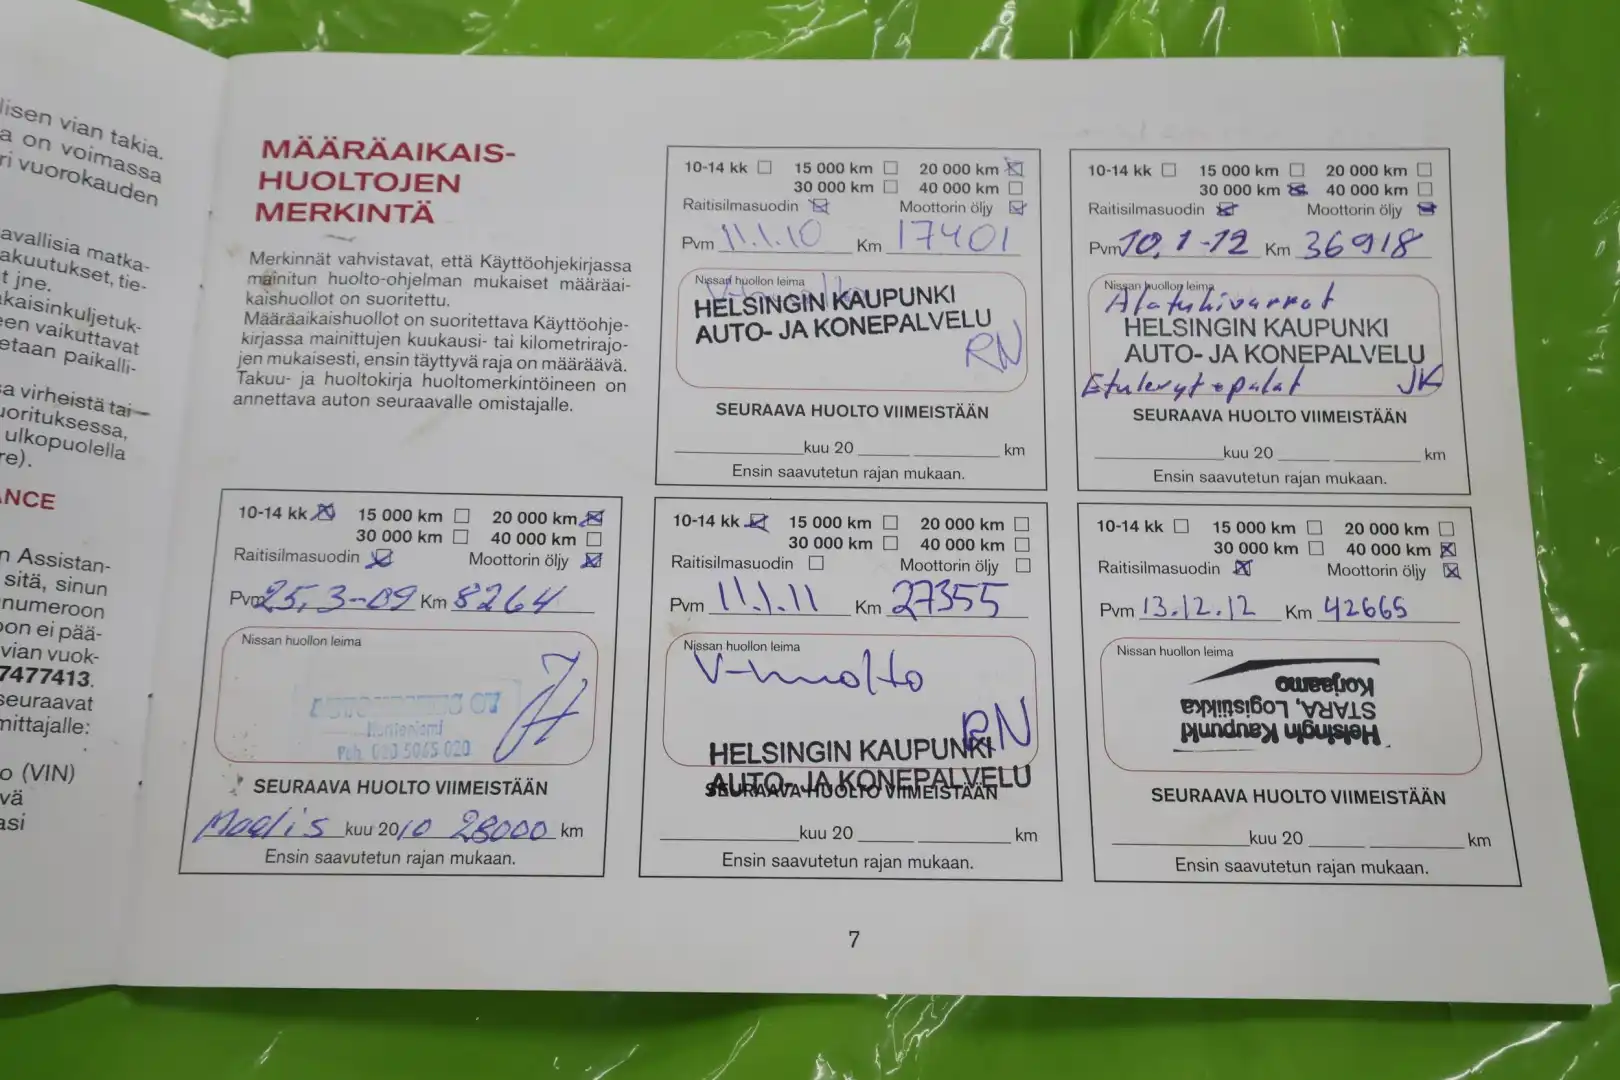 lisen vian takia.
a on voimassa
ri vuorokauden
avallisia matka-
akuutukset, tie-
t jne.
kaisinkuljetuk-
een vaikuttavat
etaan paikalli-
sa virheistä tai
uorituksessa,
ulkopuolella
re).
ANCE
n Assistan-
sitä, sinun
numeroon
oon ei pää-
vian vuok-
7477413.
seuraavat
mittajalle:
o (VIN)
vä
asi
MÄÄRÄAIKAIS-
HUOLTOJEN
MERKINTÄ
Merkinnät vahvistavat, että Käyttöohjekirjassa
mainitun huolto-ohjelman mukaiset määräai-
kaishuollot on suoritettu.
Määräaikaishuollot on suoritettava Käyttöohje-
kirjassa mainittujen kuukausi- tai kilometrirajo-
jen mukaisesti, ensin täyttyvä raja on määräävä.
Takuu- ja huoltokirja huoltomerkintöineen on
annettava auton seuraavalle omistajalle.
10-14 kk 15 000 km 20 000 km
30 000 km 40 000 km
Raitisilmasuodin Moottorin öljy
Pvm 11.1.10 Km 17401
Nissan huollon leima
V-huolto
HELSINGIN KAUPUNKI
AUTO- JA KONEPALVELU
RN
SEURAAVA HUOLTO VIIMEISTÄÄN
kuu 20 km
Ensin saavutetun rajan mukaan.
10-14 kk 15 000 km 20 000 km
30 000 km 40 000 km
Raitisilmasuodin Moottorin öljy
Pvm 10.1-12 Km 36918
Nissan huollon leima
Alatukivarret
HELSINGIN KAUPUNKI
AUTO- JA KONEPALVELU
Etulevyt+palat JK
SEURAAVA HUOLTO VIIMEISTÄÄN
kuu 20 km
Ensin saavutetun rajan mukaan.
10-14 kk 15 000 km 20 000 km
30 000 km 40 000 km
Raitisilmasuodin Moottorin öljy
Pvm 25.3-09 Km 8264
Nissan huollon leima
Puh. 020 5065 020
SEURAAVA HUOLTO VIIMEISTÄÄN
Maalis kuu 2010 28000 km
Ensin saavutetun rajan mukaan.
10-14 kk 15 000 km 20 000 km
30 000 km 40 000 km
Raitisilmasuodin Moottorin öljy
Pvm 11.1.11 Km 27355
Nissan huollon leima
V-huolto
RN
HELSINGIN KAUPUNKI
AUTO- JA KONEPALVELU
SEURAAVA HUOLTO VIIMEISTÄÄN
kuu 20 km
Ensin saavutetun rajan mukaan.
10-14 kk 15 000 km 20 000 km
30 000 km 40 000 km
Raitisilmasuodin Moottorin öljy
Pvm 13.12.12 Km 42665
Nissan huollon leima
Helsingin Kaupunki
STARA, Logistiikka
Korjaamo
SEURAAVA HUOLTO VIIMEISTÄÄN
kuu 20 km
Ensin saavutetun rajan mukaan.
7